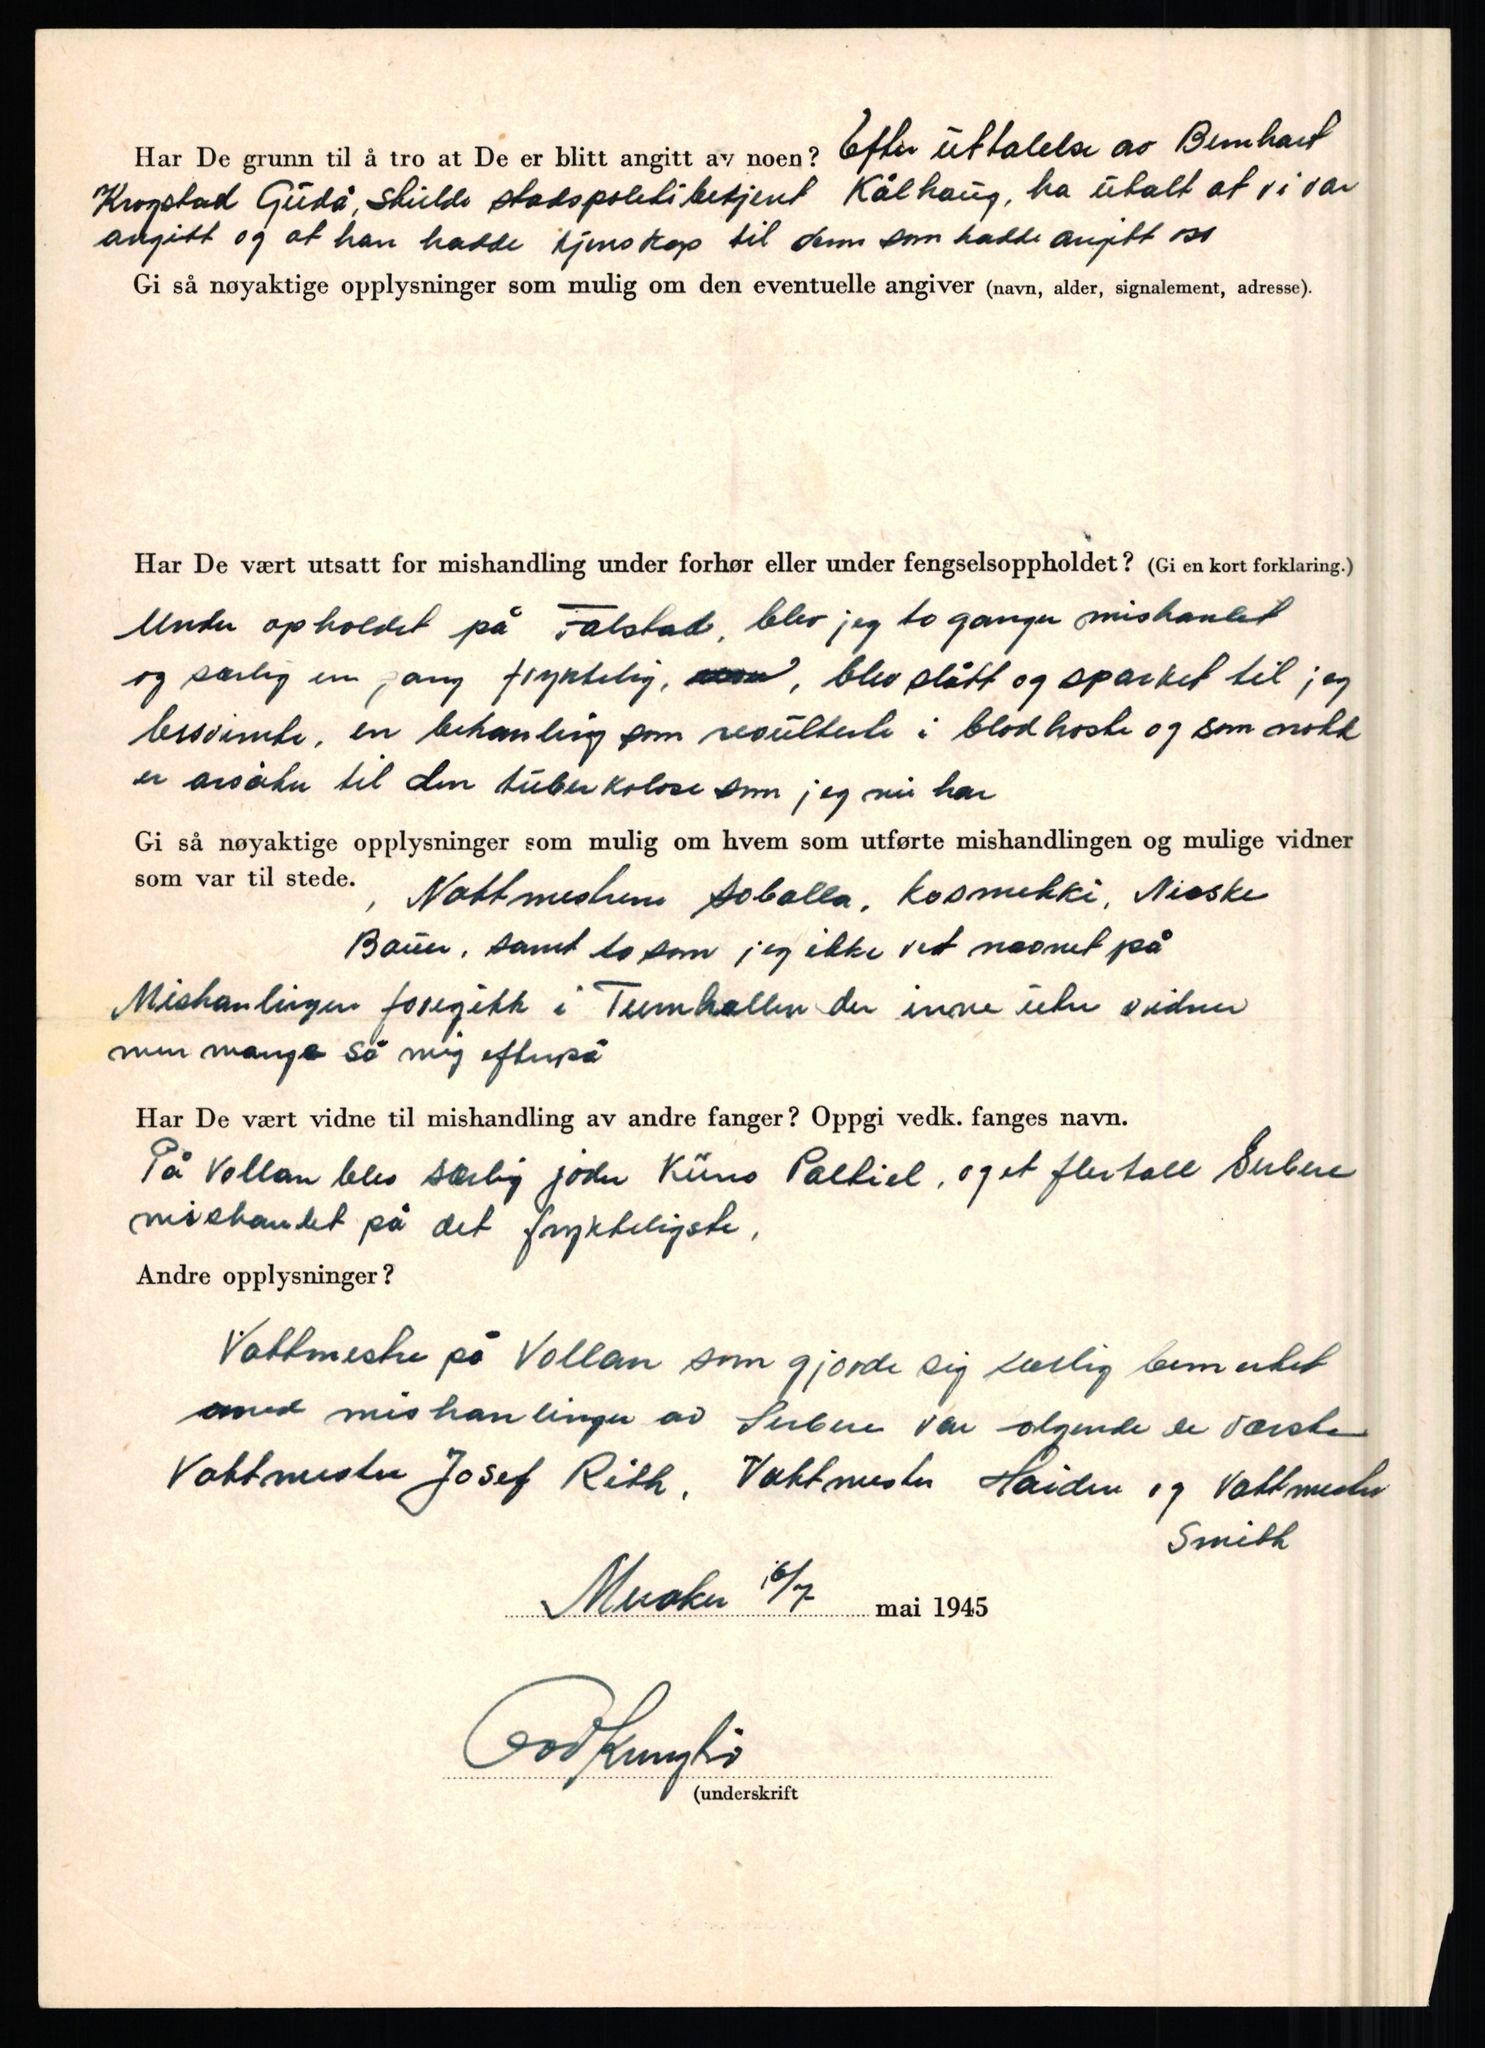 Har De grunn til å tro at De er blitt angitt av noen? Efter üttalelse av Bernhart
Krogstad Güdå, skulde stadspolitibetjent Kålhaug, ha ütalt at vi var
angitt og at han hadde kjenskap til dem som hadde angitt oss
Gi så nøyaktige opplysninger som mulig om den eventuelle angiver (navn, alder, signalement, adresse).
Har De vært utsatt for mishandling under forhør eller under fengselsoppholdet? (Gi en kort forklaring.)
Under opholdet på Falstad, blev jeg to ganger mishanlet
og særlig en gang fryktelig, blev slått og sparket til jeg
besvimte, en behanling som resülterte i blodhoste og som nokk
er arsaken til den tüberkolose som jeg nü har
Gi så nøyaktige opplysninger som mulig om hvem som utførte mishandlingen og mulige vidner
som var til stede.
, Vaktmestrene Soballa, Kosmehki, Nieske
Baüer, samt to som jeg ikke vet navnet på
Mishanlingen foregikk i Turnhallen der inne üten vidner
men mange så mig efterpå
Har De vært vidne til mishandling av andre fanger? Oppgi vedk. fanges navn.
På Vollan blev særlig jøden Küno Paltiel, og et flertall Serbere
mishandlet på det frykteligste.
Andre opplysninger?
Vaktmestre på Vollan som gjorde sig særlig bemerket
med mishanlinger av Serbere var ølgende de værste
Vaktmester Josef Rith, Vaktmester Haiden og Vaktmester
Smith
Meraker 16/7 mai 1945
(underskrift